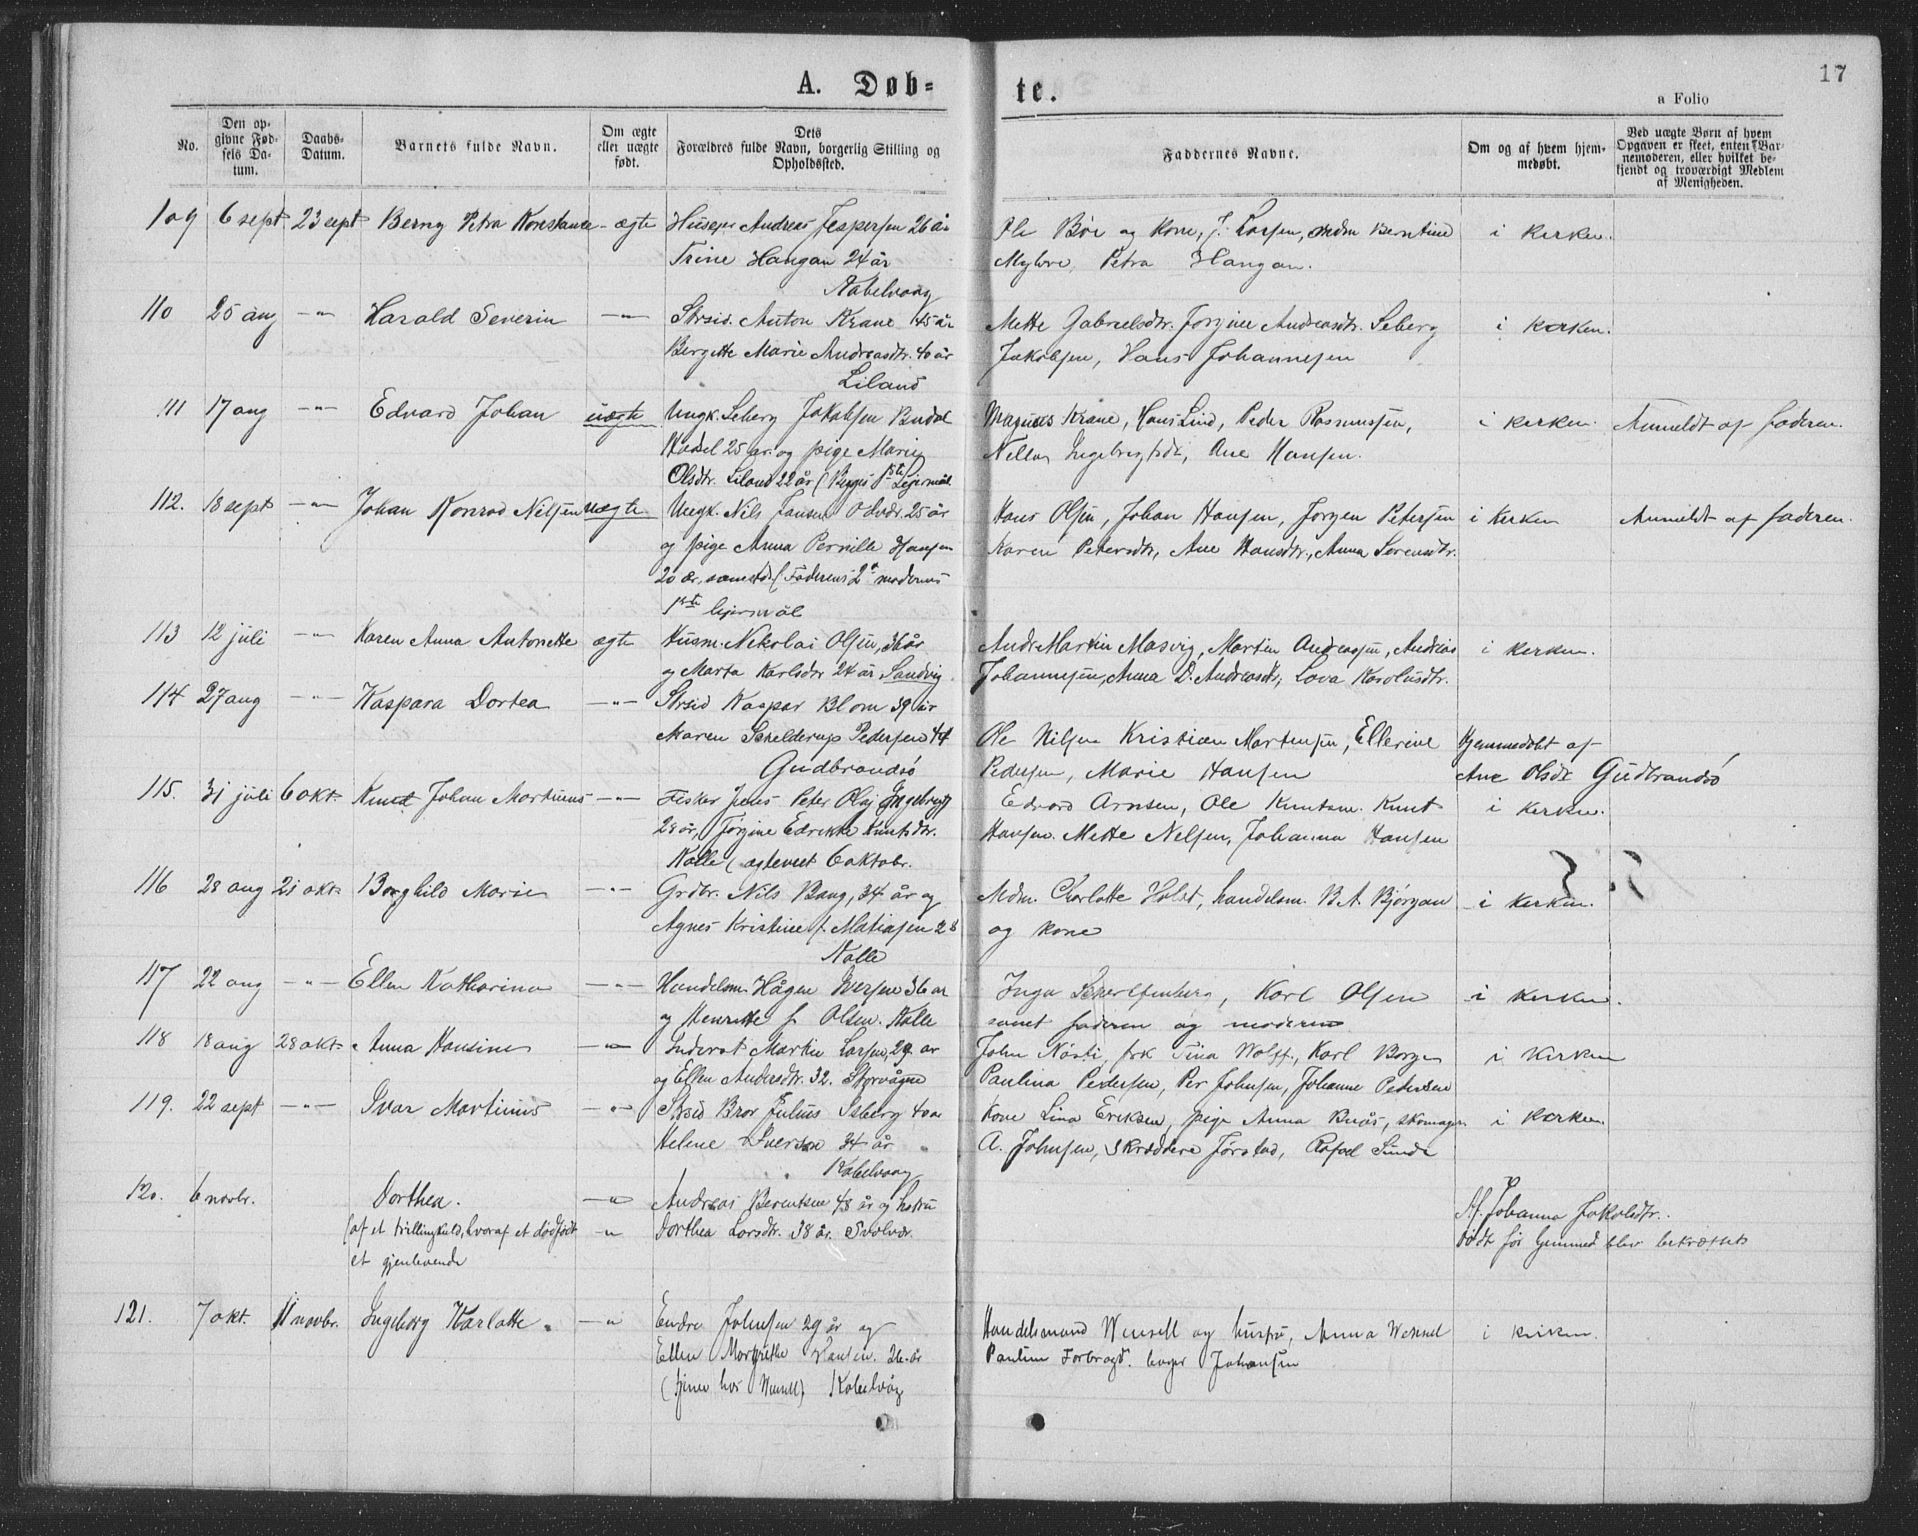 A. Døb=
te.
17
a Folio
No.
Den op-
givne Fød-
sels Da-
tum.
Daabs-
Datum.
Barnets fulde Navn.
Om ægte
eller uægte
født.
Dets
Forældres fulde Navn, borgerlig Stilling og
Opholdssted.
Faddernes Navne.
Om og af hvem hjem-
medøbt.
Ved uægte Børn af hvem
Opgaven er skeet, enten Bar-
nemoderen, eller hvilket be-
kjendt og troværdigt Medlem
af Menigheden.
109 6 sept 23 sept Berny Petra Konstance ægte Huseger Andreas Jespersen 26 år
Trine Hangan 24 år
Kabelvaag
Ole Bøe og kone, J. Larsen, Berntine
Myhre, Petra Hangan.
i kirken.
110 25 aug -"- Harald Severin -"- Strsid. Anton Krane 45 år
Bergitte Marie Andreasdtr. 40 år
Liland
Mette Gabrielsdtr. Jørgine Andreasdtr. Seberg
Jakobsen, Hans Johannesen
i kirken.
111 17 aug -"- Edvard Johan uægte Ungk. Seberg Jakobsen
25 år og pige Marie
Olsdtr. Liland 22 år (Begges 1ste Lejermål
Magnus Krane, Hans Lind, Peder Rasmussen,
Ingebrigtsdtr, Ane Hansen.
i kirken. Anmeldt af faderen.
112. 18 sept -"- Johan Konrad Nilsen uægte Ungk. Nils Jansen 25 år
og pige Anna Pernille Hansen
20 år, (Faderens 2d moderens
1ste lejermål
Hans Olsen, Johan Hansen, Jørgen Petersen
Karen Petersdtr, Ane Hansdtr., Anna Sørensdtr.
i kirken Anmeldt af faderen.
113 12 juli -"- Karen Anna Antonette ægte Husm. Nikolai Olsen, 36 år
og Marta Karlsdtr 24 år, Sandvig.
Andr. Martin Masvig, Martin Andreasen, Andreas
Johannesen, Anna D. Andreasdtr, Lova Karolusdtr.
i kirken.
114 27 aug -"- Kaspara Dortea -"- Strsid Kaspar Blom 39 år
Maren Schelderup Pedersen 44
Gudbrandsø
Ole Nilsen Kristian Martensen, Ellerine
Pedersen, Marie Hansen
Hjemmedøbt af
Ane Olsdtr Gudbrandsø
115. 31 juli 6 okt. Knud Johan Martinus -"- Fisker Jens Peter Olaj
28 år, Jørgine Edrikke Knutsdtr.
Kalle (ægteviet 6 oktobr.
Edvard Arnsen, Ole Knutsen. Knut
Hansen. Mette Nelsen, Johanna Hansen
i kirken.
116 28 aug 21 okt. Borghild Marie -"- Grdbr. Nils Bang, 34 år og
Agnes Kristine f. Matiasen 28
Kalle
Mdm. Charlotte Holst, handelsm. B.A. Bjørgan
og kone
i kirken.
117 22 aug -"- Ellen Katharina -"- Handelsm. Hågen Iversen 36 år
og Henrette f. Olsen. Kalle
Inga , Karl Olsen
samt faderen og moderen
i kirken.
118 18 aug 28 okt. Anna Hansine -"- Inderst Martin Larsen, 29 år
og Ellen Andersdtr. 32. Storvågan
John Nøsti, frk Tina Wolff, Karl Borgen
Paulina Pedersen, Per Johnsen, Johanne Pedersen
i kirken
119. 22 sept -"- Ivar Martinus -"- Strsid Bror Julius Isberg 40 år
Helene Iversen 34 år
Kabelvaag
Kone Lina Eriksen, pige Anna Buås, skomager
A. Johnsen, skræddere Jørstad, Rafael Sunde
i kirken.
120. 6 novbr. Dorthea. -"- Andreas Berentsen 48 år og hustru
(af et trillingkuld, hvoraf et dødfødt -"- Dorthea Larsdtr. 38 år. Svolvær.
et gjenlevende
Af Johanna Jakobsdtr.
Død før hjemmed blev bekræftet
121. 7 okt. 11 novbr. Ingeborg Karlotte -"- Endre Johnsen 29 år og
Ellen Margrethe Hansen. 26 år
(tjener hos Wensell) Kabelvåg
Handelsmand Wensell og hustru, Anna Wensel
Pauline Forbragd. bager Johansen
i kirken.